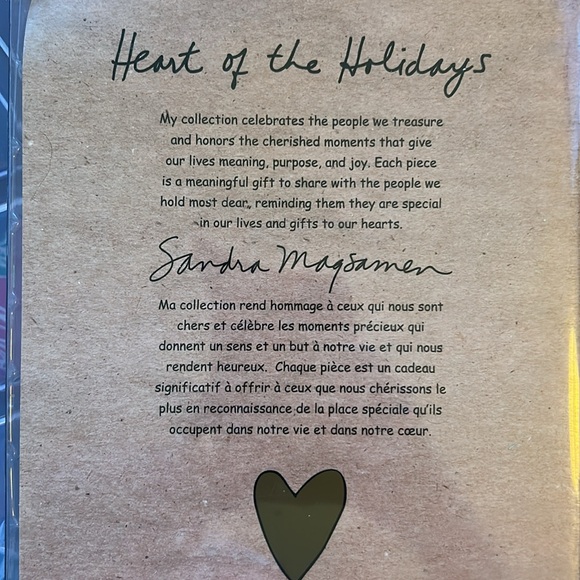 Heart of the Holidays
My collection celebrates the people we treasure
and honors the cherished moments that give
our lives meaning, purpose, and joy. Each piece
is a meaningful gift to share with the people we
hold most dear, reminding them they are special
in our lives and gifts to our hearts.
Sandra Magsamen
Ma collection rend hommage à ceux qui nous sont
chers et célèbre les moments précieux qui
donnent un sens et un but à notre vie et qui nous
rendent heureux. Chaque pièce est un cadeau
significatif à offrir à ceux que nous chérissons le
plus en reconnaissance de la place spéciale qu'ils
occupent dans notre vie et dans notre cœur.